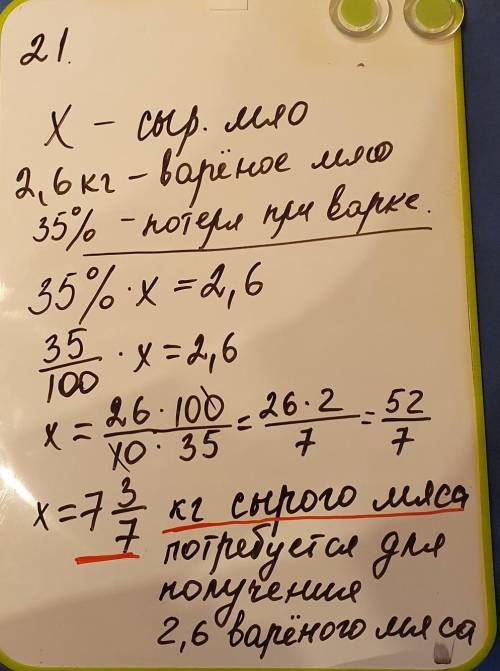 21.
x – сыр. мяо
2,6 кг – варёное мясо
35% – потеря при варке.
35% · x = 2,6
35/100 · x = 2,6
x = 26 · 100 / 10 · 35 = 26 · 2 / 7 = 52/7
x = 7 3/7 кг сырого мяса
потребуется для
получения
2,6 варёного мяса